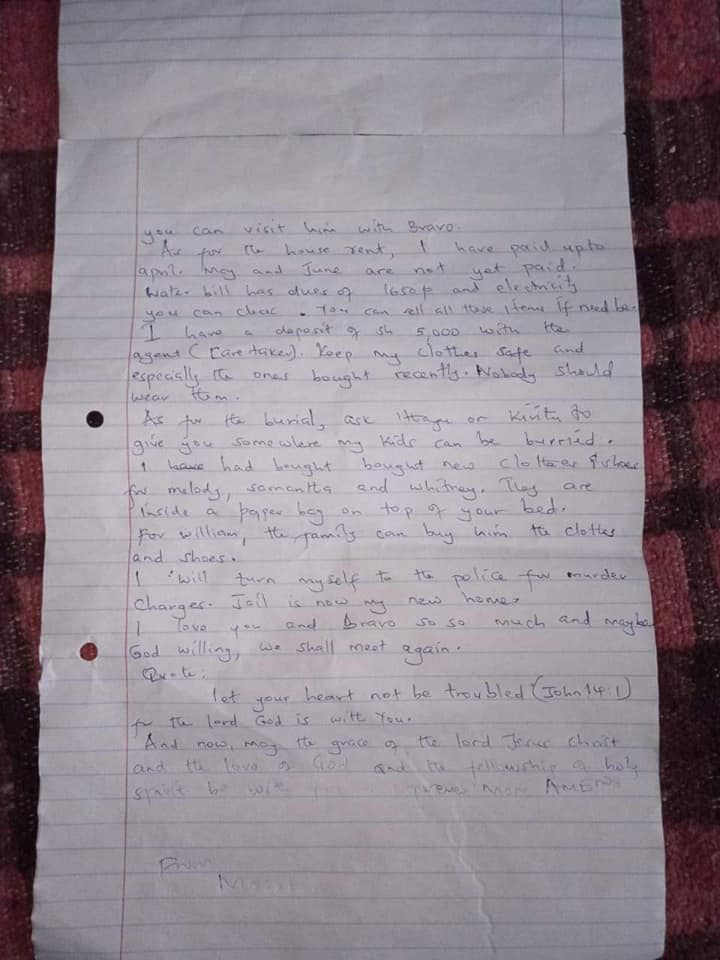 you can visit him with Bravo.
As for the house rent, I have paid upto
april. May and June are not yet paid.
Water bill has dues of 1650/= and electricity
you can clear. You can sell all these items if need be.
I have a deposit of sh 5,000 with the
agent (caretaker). Keep my clothes safe and
especially the ones bought recently. Nobody should
wear them.
As for the burial, ask or to
give you somewhere my kids can be burried.
I have had bought bought new clothes & shoes
for melody, samantha and whitney. They are
inside a paper bag on top of your bed.
For william, the family can buy him the clothes
and shoes.
I will turn myself to the police for murder
charges. Jail is now my new home.
I love you and Bravo so so much and maybe
God willing, we shall meet again.
Quote:
let your heart not be troubled (John 14:1)
for the lord God is with you.
And now, may the grace of the lord Jesus Christ
and the love of God and the fellowship of holy
spirit be with more AMEN
From